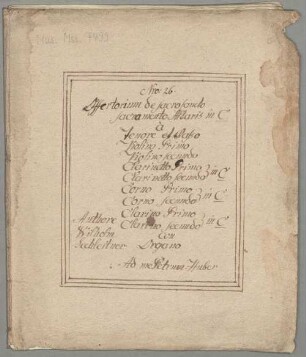 Mus. Ms. 7433
Nro: 26.
Offertorium de sacrosancto
sacramento Altaris in C
à
Tenore et Basso
Violino Primo
Violino secundo
Clarinetto Primo
Clarinetto secundo in C
Corno Primo
Corno secundo in C
Clarino Primo
Clarino secundo in C
Con
Organo
Authore
Ad me Petrum Huber